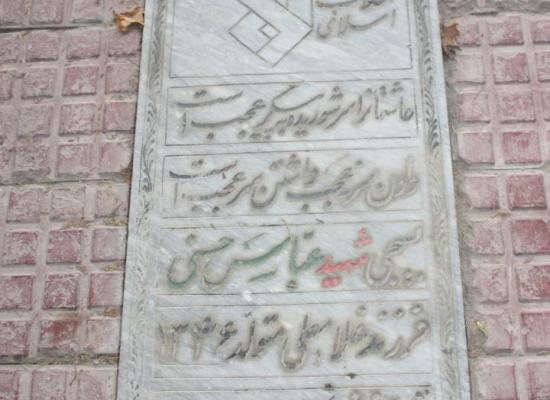 اسلامی
عاشقانرا سر شوریده به پیکر عجب است
دادن سر نه عجب داشتن سر عجب است
بسیجی شهید عباس حسنی
فرزند غلامعلی متولد ۱۳۴۶